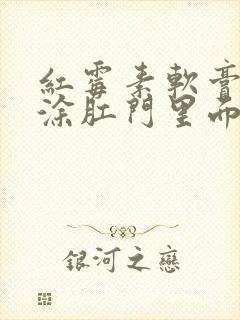 紅霉素軟膏
涂肛門里面
銀河之戀